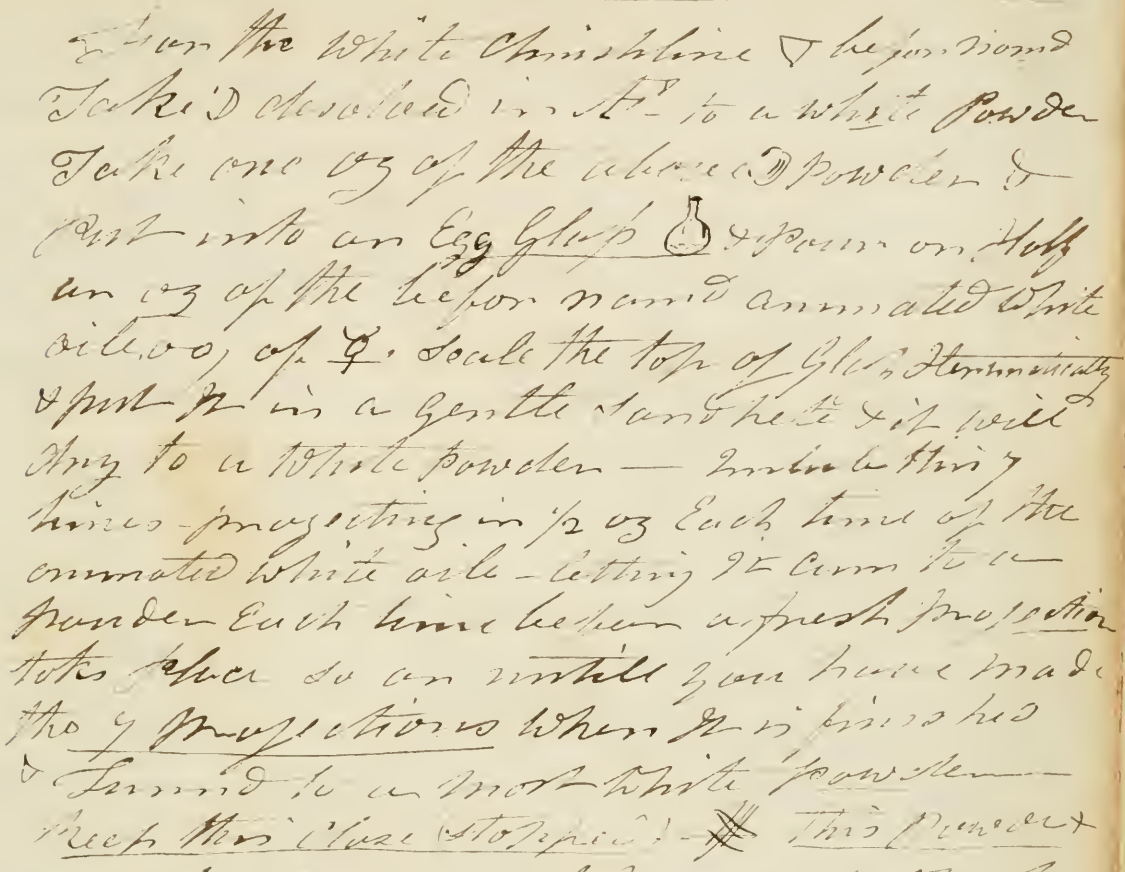 the White Christline 🜃 before namd
Take ☽ desolved in AF to a white Powder
Take one oz of the above ☽ Powder &
Put into an Egg Glass & Pour on Half
an oz of the befor namd anmated White
oile of ☿. Seale the top of Glas Hermetically
& put It in a gentle Sand hete & it will
dry to a White Powder — 7
times - projecting in 1/2 oz Each time of the
anmated White oile - letting It cum to a
Pouder Each time before a fresh projection
take place so on untill you have made
the 7 Projections When It is finished
& Turnd to a most White Powder
Keep this Close stopped - This Power &